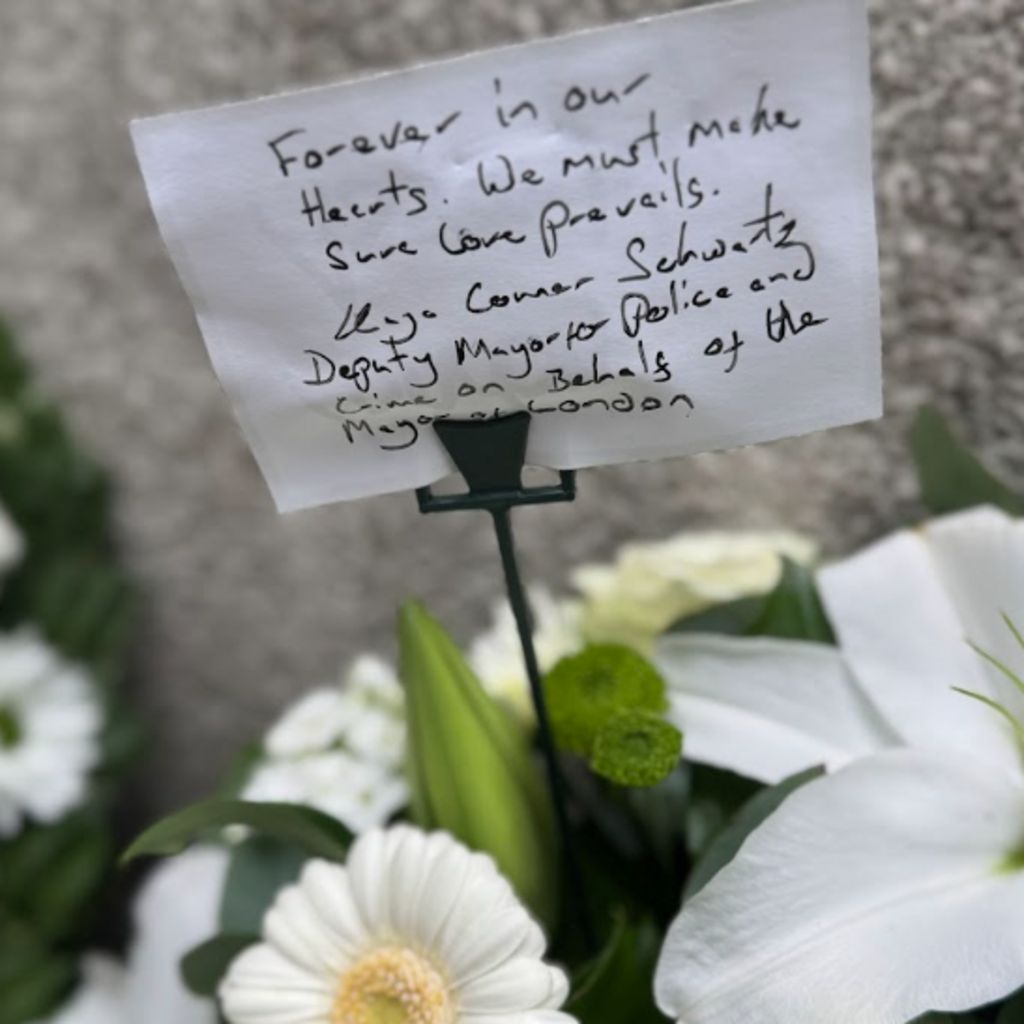 Forever in our
Hearts. We must make
sure love prevails.
Kaya Comer Schwartz
Deputy Mayor for Police and
Crime on Behalf of the
Mayor of London